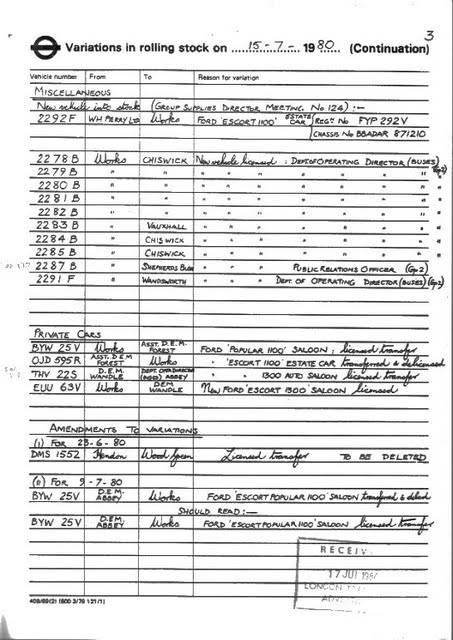 3
Variations in rolling stock on 15-7-1980 (Continuation)
Vehicle number From To Reason for variation
MISCELLANEOUS
New vehicle into stock (GROUP SUPPLIES DIRECTOR MEETING. No 124) :-
2292F WH PERRY LTD Works FORD 'ESCORT 1100' ESTATE CAR REGN. No FYP 292V
CHASSIS No BBADAR 871210
2278 B Works CHISWICK New vehicle licensed : DEPT. OF OPERATING DIRECTOR (BUSES) (Gp2)
2279 B " " " " " "
2280 B " " " " " "
2281 B " " " " " "
2282 B " " " " " "
2283 B " VAUXHALL " " " "
2284 B " CHISWICK " " " "
2285 B " CHISWICK " " " "
2287 B " SHEPHERDS BUSH " " " PUBLIC RELATIONS OFFICER (Gp2)
2291 F " WANDSWORTH " " " DEPT. OF OPERATING DIRECTOR (BUSES) (Gp2)
PRIVATE CARS
BYW 25V Works ASST. D.E.M. FOREST FORD 'POPULAR 1100' SALOON : licensed transfer
OJD 595R ASST. D.E.M FOREST Works " 'ESCORT 1100' ESTATE CAR transferred & delicensed
THV 22S D.E.M. WANDLE ABBEY " " 1300 AUTO SALOON licensed transfer
EUU 63V Works DEM WANDLE New FORD 'ESCORT 1300' SALOON licensed
AMENDMENTS TO VARIATIONS
(i) FOR 23-6-80
DMS 1552 Hendon Wood Green Licensed transfer TO BE DELETED
(ii) FOR 9-7-80
BYW 25V D.E.M. ABBEY Works FORD 'ESCORT POPULAR 1100' SALOON transferred & delicd
SHOULD READ:—
BYW 25V D.E.M. ABBEY Works FORD 'ESCORT POPULAR 1100' SALOON licensed transfer
RECEIV
17 JUL 198
LONDON